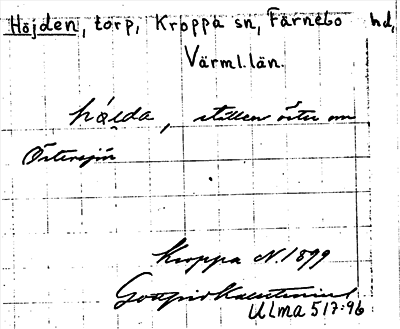 Höjden, torp, Kroppa sn, Färnebo hd,
Värml.län.
hǫ́ida, ställen öster om
Östersjön
Kroppa N. 1899
Gottfrid Kallstenius
ULMA 517:96